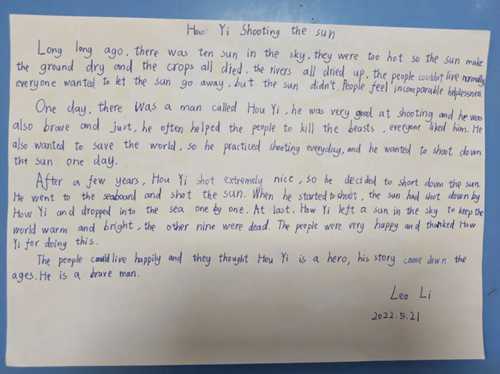 How Yi Shooting the sun
Long long ago, there was ten sun in the sky, they were too hot so the sun make
the ground dry and the crops all died, the rivers all dried up, the people couldn't live normally
everyone wanted to let the sun go away, but the sun didn't. People feel incomparable helplessness.
One day, there was a man called Hou Yi, he was very good at shooting and he was
also brave and just, he often helped the people to kill the beasts, everyone liked him. He
also wanted to save the world, so he practiced shooting everyday, and he wanted to shoot down
the sun one day.
After a few years, Hou Yi shot extremely nice, so he decided to short down the sun.
He went to the seabound and shot the sun. When he started to shoot, the sun had shot down by
How Yi and dropped into the sea one by one. At last, How Yi left a sun in the sky to keep the
world warm and bright, the other nine were dead. The people were very happy and thanked How
Yi for doing this.
The people could live happily and they thought Hou Yi is a hero, his story came down the
ages. He is a brave man.
Leo Li
2022.5.21